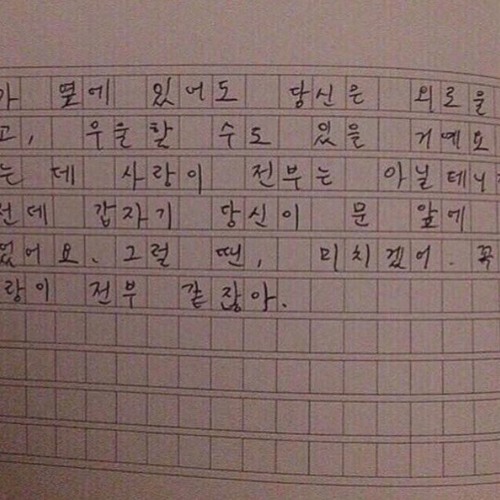 가 옆에 있어도 당신은 외로울
고, 우울할 수도 있을 거예요
는 데 사랑이 전부는 아닐테니
런데 갑자기 당신이 문 앞에
었어요. 그럴 땐, 미치겠어. 꼭
랑이 전부 같잖아.